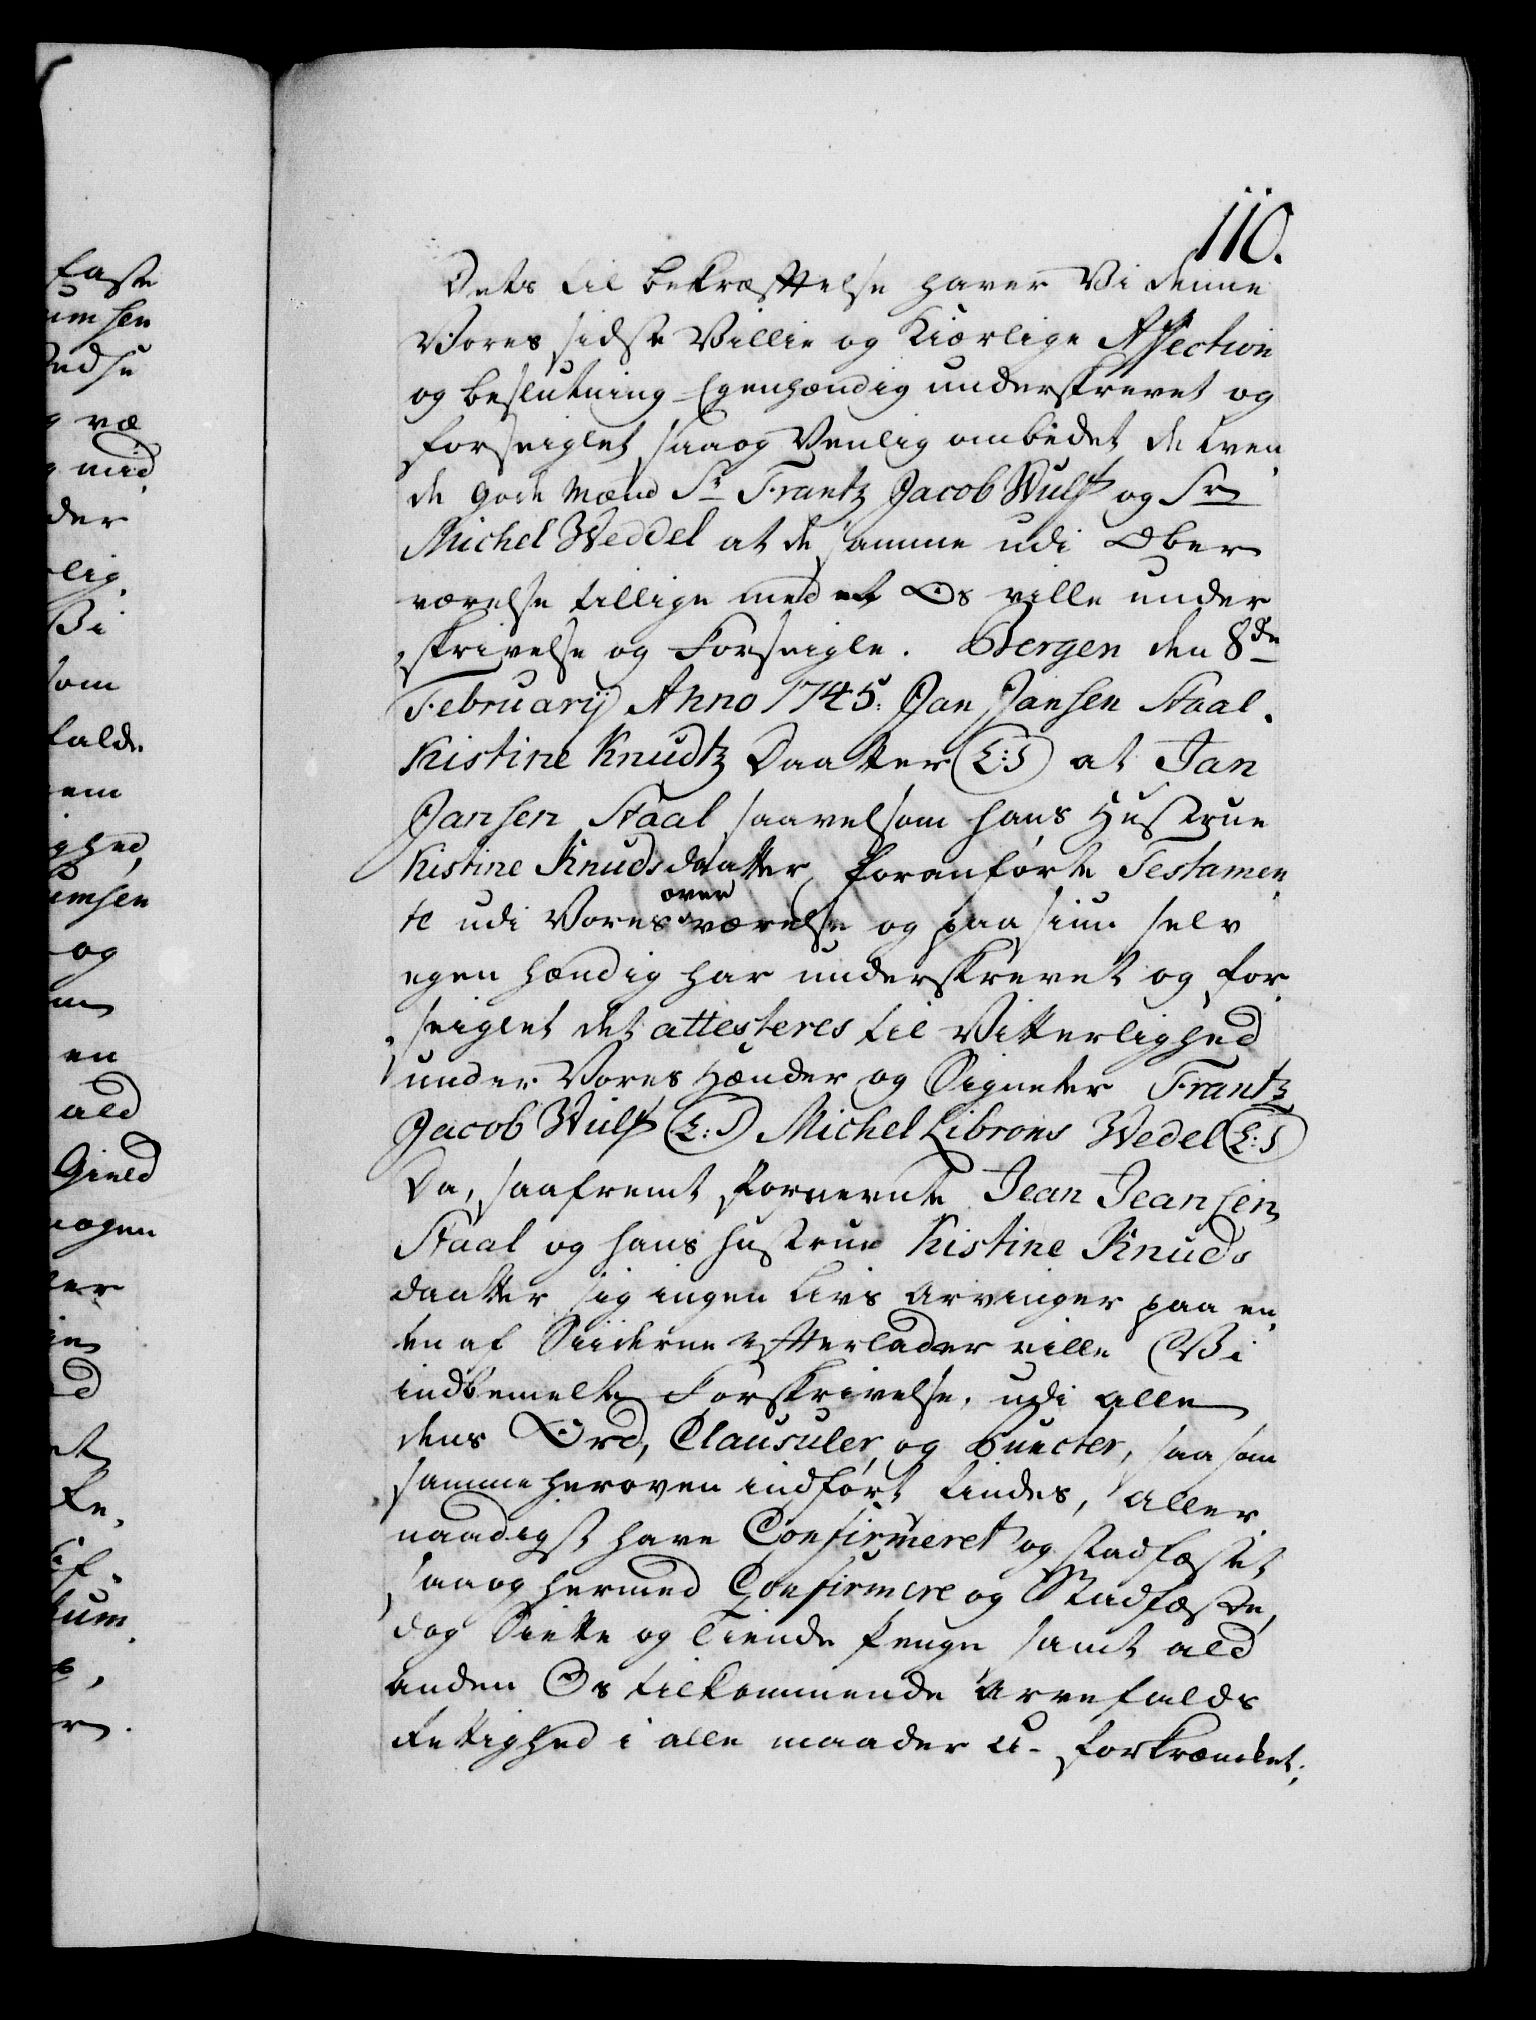 110.
Dets til bekræfttelse haver Vi denne
Vores sidste Villie og Kiærlige Affection
og beslutning Egenhændig underskrevet og
forseiglet, saa og Venlig ombedet de tven
de gode Mænd Sr Frantz Jacob Wulff og Sr
Michel Weddel at de samme udi Ober
værelse tillige med et Os ville under
skrivelse og Forseigle. Bergen den 8de
Februarij Anno 1745. Jan Jansen Staal.
Kistine Knudtz Daatter (L:S) at Jan
Jansen Staal saavelsom hans Hustrue
Kistine Knudsdaatter foranførte Testamen
te udi Vores over værelse og paa siun selv
egen hændig har underskrevet og for
seiglet det attesteres til Vitterlighed
under Vores Hænder og Signeter Frantz
Jacob Wulff (L:S) Michel Librons Wedel (L:S)
Da, saafremt fornevnte Jean Jeansen
Staal og hans hustrue Kistine Knuds
daatter sig ingen Livs Arvinger paa en
ten af Siiderne efterlader ville Vi
indbemelte Forskrivelse, udi alle
dens Ord, Clausuler, og Puncter, saa som
samme heroven indført findes, Aller
naadigst have Confirmeret og stadfæstet
saa og hermed Confirmere og Stadfæste,
dog Siette og Tiende Penge samt ald
anden Os tilkommende Arvefalds
Rettighed i alle maader U-forkræncket;
faste
umsen
ved
væ
med
der
lig
Vi
som
falde
em
ghed,
umsen
og
en
ald
Gield
nogen